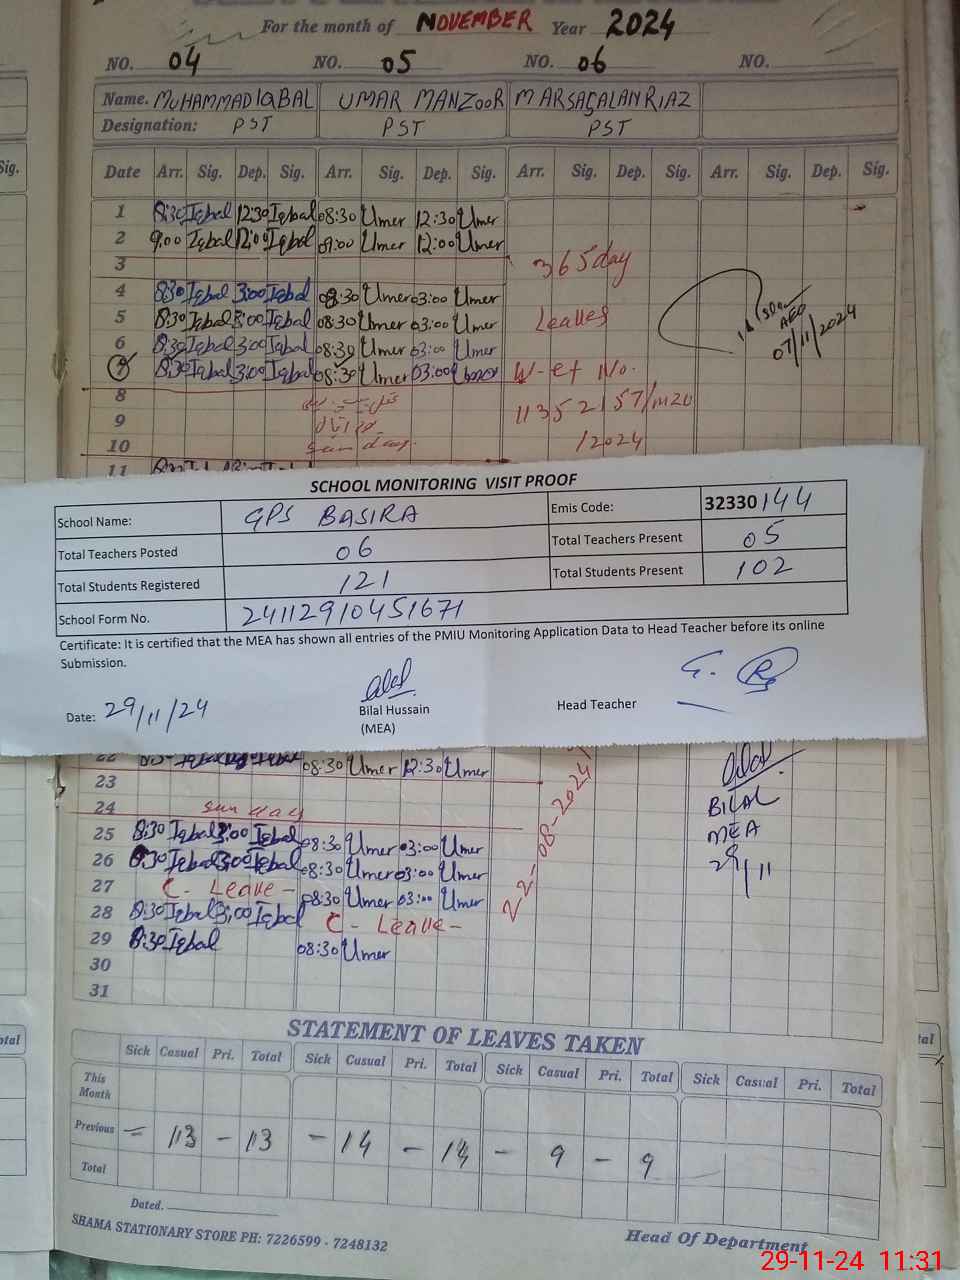 For the month of NOVEMBER Year 2024
NO. 04 NO. 05 NO. 06 NO.
Name. MUHAMMAD IQBAL UMAR MANZOOR M ARSAGALAN RIAZ
Designation: PST PST PST
Date Arr. Sig. Dep. Sig. Arr. Sig. Dep. Sig. Arr. Sig. Dep. Sig. Arr. Sig. Dep. Sig.
1 8:30 Iqbal 12:30 Iqbal 08:30 Umer 12:30 Umer
2 9:00 Iqbal 12:00 Iqbal 09:00 Umer 12:00 Umer
3 365 day
4 8:30 Iqbal 3:00 Iqbal 08:30 Umer 03:00 Umer
5 8:30 Iqbal 3:00 Iqbal 08:30 Umer 03:00 Umer Leaves AEO
6 8:30 Iqbal 3:00 Iqbal 08:30 Umer 03:00 Umer 07/11/2024
7 8:30 Iqbal 3:00 Iqbal 08:30 Umer 03:00 Umer W-ef No.
8 1135 2157/m20
9
10 Sun day. /2024
11
SCHOOL MONITORING VISIT PROOF
School Name: GPS BASIRA Emis Code: 32330144
Total Teachers Posted 06 Total Teachers Present 05
Total Students Registered 121 Total Students Present 102
School Form No. 24112910451671
Certificate: It is certified that the MEA has shown all entries of the PMIU Monitoring Application Data to Head Teacher before its online
Submission.
Date: 29/11/24 Bilal Hussain Head Teacher
(MEA)
22 08:30 Umer 12:30 Umer
23
24 Sun day BILAL
25 8:30 Iqbal 3:00 Iqbal 08:30 Umer 03:00 Umer MEA
26 8:30 Iqbal 3:00 Iqbal 08:30 Umer 03:00 Umer 29/11
27 C - Leave - 08:30 Umer 03:00 Umer 22-08-2024
28 8:30 Iqbal 3:00 Iqbal C - Leave -
29 8:30 Iqbal 08:30 Umer
30
31
STATEMENT OF LEAVES TAKEN
Sick Casual Pri. Total Sick Casual Pri. Total Sick Casual Pri. Total Sick Casual Pri. Total
This Month
Previous - 13 - 13 - 14 - 14 - 9 - 9
Total
Dated.
SHAMA STATIONARY STORE PH: 7226599 - 7248132 Head Of Department
29-11-24 11:31